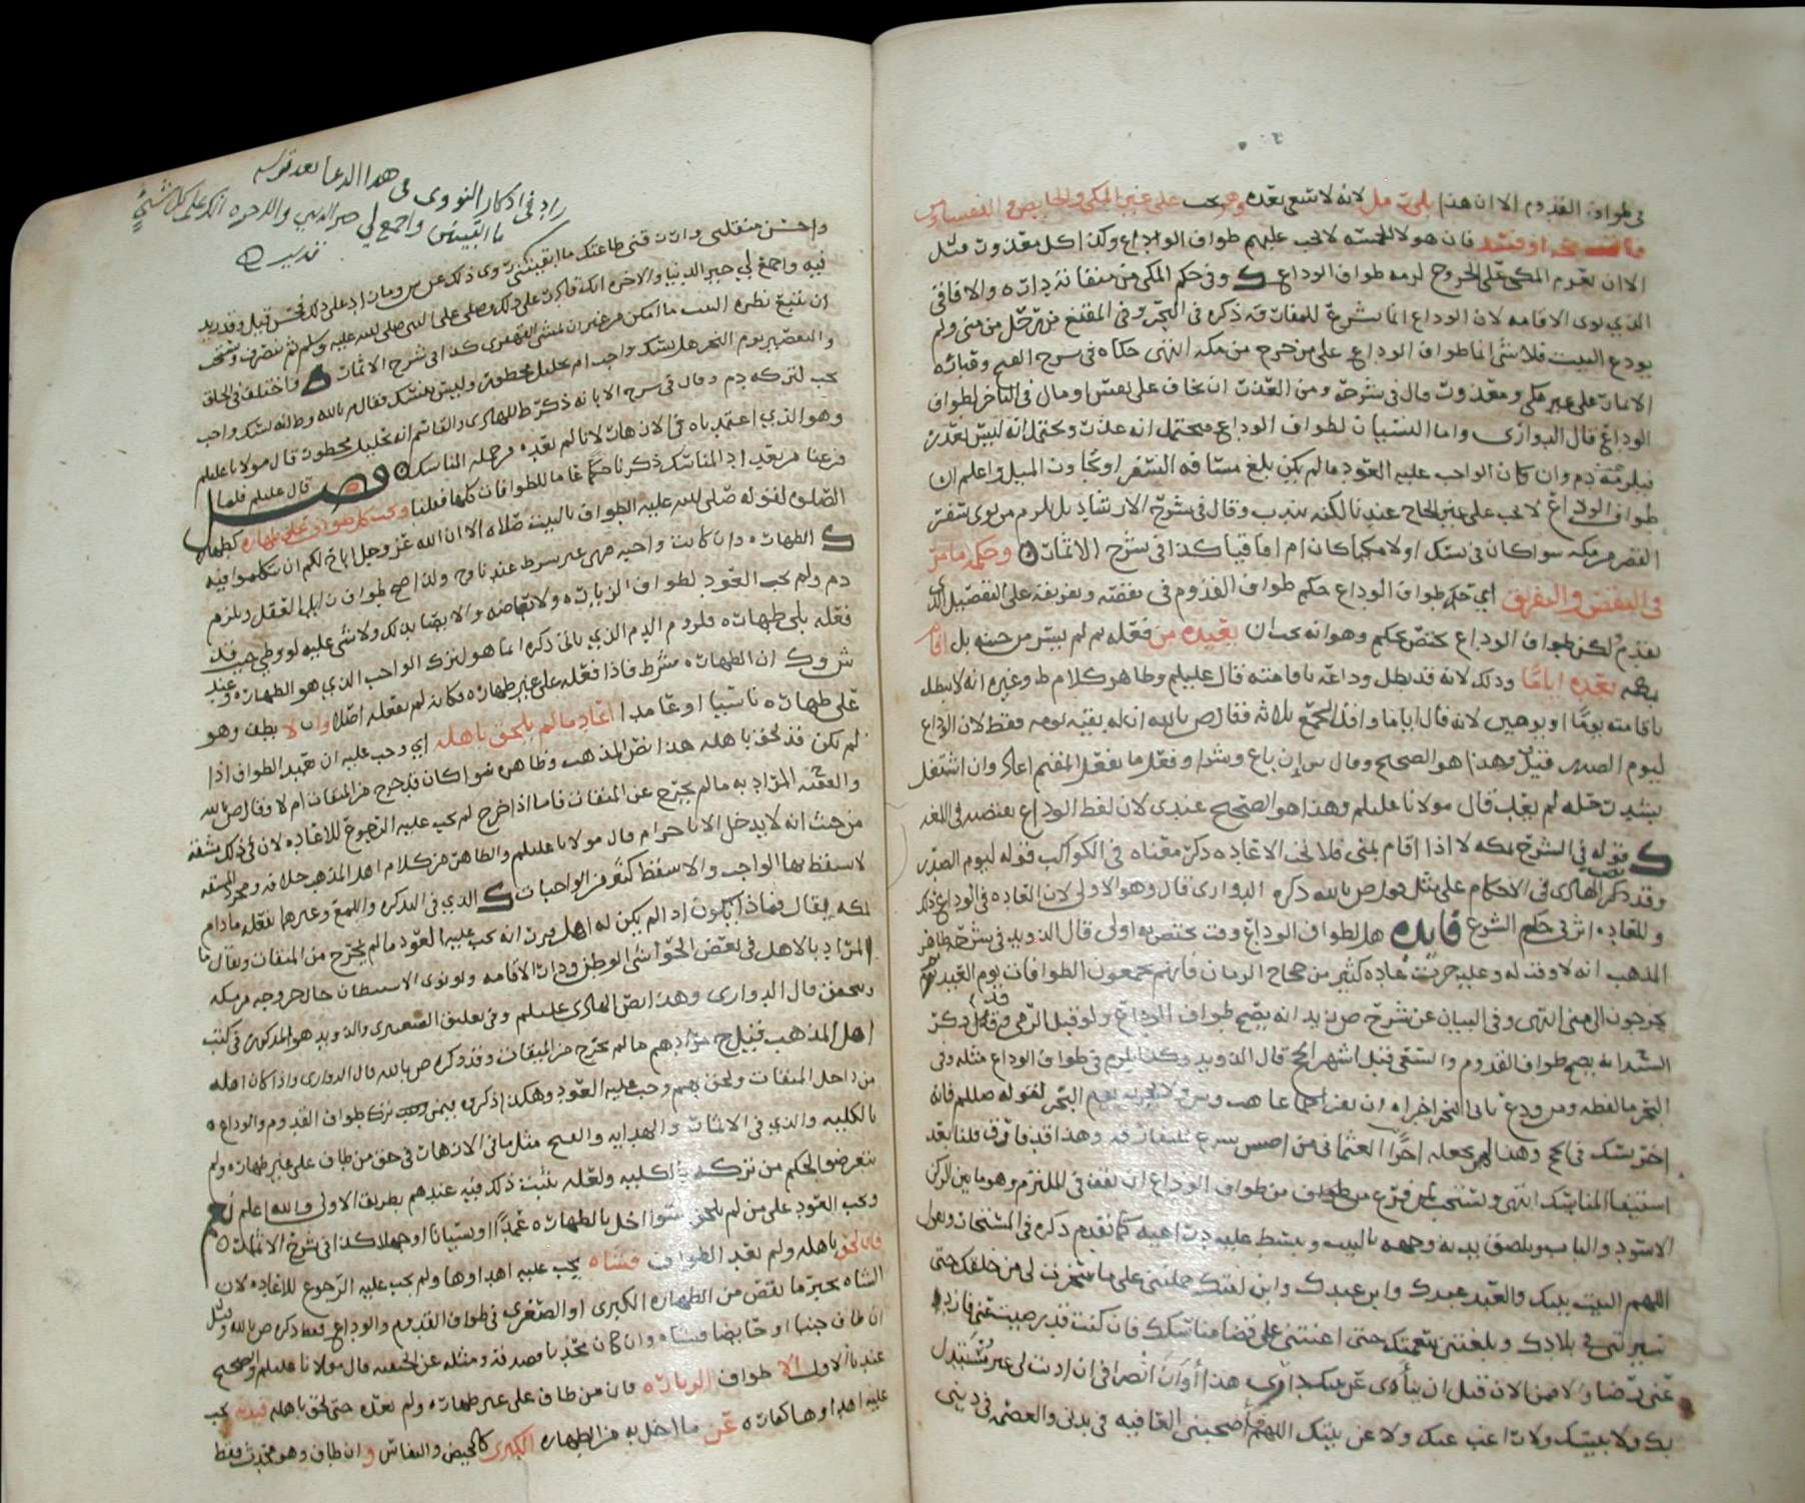 في طواف القدوم الا ان هذا بلا رمل لانه لا سعي بعده وهو يجب على غير المكي والحايض والنفساء ومن
فات حجه او فسد فان هولا الخمسة لا يجب عليهم طواف الوداع وكذا كل معذور مثل
الا ان يعزم المكي على الخروج لزمه طواف الوداع وفي حكم المكي من ميقاته داره والافاقي
الذي نوى الاقامه لان الوداع انما يشرع للمفارقه ذكره في البحر وفي المقنع من ترحل من منى ولم
يودع البيت فلا شي انما طواف الوداع على من خرج من مكه انتهى حكاه في شرح الفتح
الاثمار على غير مكي ومعذور قال في شرحه ومن العذر ان يخاف على نفس او مال في التاخر لطواف
الوداع قال الدواري واما النسيان لطواف الوداع فيحتمل انه عذر ويحتمل انه ليس بعذر
فيلزمه دم وان كان الواجب عليه العود ما لم يكن بلغ مسافه السفر او تجاوز الميل واعلم ان
طواف الوداع لا يجب على غير الحاج عندنا لكنه يندب وقال في شرح الارشاد بل يلزم من نوى سفر
القصر من مكه سوا كان في نسك او لا مكيا كان ام افاقيا كذا في شرح الاثمار وحكمه ما مر
في النقص والتفريق اي حكم طواف الوداع حكم طواف القدوم في نقصه وتفريقه على التفصيل الذي
تقدم لكن طواف الوداع يختص بحكم وهو انه يجب ان يعيده من فعله ثم لم يسر من حينه بل اقام
بمكه بعده اياما وذلك لانه قد بطل وداعه باقامته قال عليلم وظاهر كلام ط وغيره انه لا يبطل
باقامته يوما او يومين لانه قال اياما واقل الجمع ثلاثه فقال ص بالله ان له بقيه يومه فقط لان الوداع
ليوم الصدر قيل وهذا هو الصحيح وقال ان باع وشرا وفعل ما يفعل المقيم اعاد وان اشتغل
بشد رحله لم يعد قال مولانا عليلم وهذا هو الصحيح عندي لان لفظ الوداع يقتضيه في اللغه
قوله في الشرح بمكه لا اذا اقام بمنى فلا تجب الاعاده ذكر معناه في الكواكب قوله ليوم الصدر
وقد ذكر الهادي في الاحكام على مثل قول ص بالله ذكره الدواري قال وهو الاولى لان العاده في الوداع ذلك
وللعاده اثر في حكم الشرع فايده هل لطواف الوداع وقت يختص به اولى قال الذويد في شرحه ظاهر
المذهب انه لا وقت له وعليه جرت عاده كثير من حجاج الزمان فانهم يجمعون الطوافات يوم العيد ثم
يخرجون الى منى انتهى وفي البيان عن شرح ص زيد انه يصح طواف الوداع ولو قبل الرمي وقد ذكر
السيد انه يصح طواف القدوم والسعي قبل اشهر الحج قال الذويد وكذا يلزم في طواف الوداع مثله وفي
البحر ما لفظه ومن ودع ثاني النحر اجزاه
اخر نسك في الحج وهذا لم يجعله اخرا
استيفا المناسك انتهى ويستحب لمن فرغ من طواف الوداع ان يقف في الملتزم وهو ما بين الركن
الاسود والباب ويلصق يديه ووجهه بالبيت ويبسط عليه ذراعيه كما تقدم ذكره في المستحبات ويقول
اللهم البيت بيتك والعبد عبدك وابن عبدك وابن امتك حملتني على ما سخرت لي من خلقك حتى
سيرتني في بلادك وبلغتني بنعمتك حتى اعنتني على قضا مناسكك فان كنت قد رضيت عني فازدد
عني رضا والا فمن الان قبل ان ينأى عن بيتك داري هذا أوان انصرافي ان اذنت لي غير مستبدل
بك ولا ببيتك ولا راغب عنك ولا عن بيتك اللهم فأصحبني العافيه في بدني والعصمه في ديني
هذا الدعا بعد قوله
زاد في اذكار النووي في
ما ابقيتني واجمع لي خير الدنيا والاخره انك على كل شيء
قدير
واحسن منقلبي وارزقني طاعتك ما ابقيتني
فيه واجمع لي خير الدنيا والاخره انك قادر على ذلك ويصلي على النبي صلى الله عليه وسلم ثم ينصرف ويستحب
ان يتبع نظره البيت ما امكن من غير ان يمشي القهقرى كذا في شرح الاثمار واختلف في الحلق
والتقصير يوم النحر هل نسك واجب ام تحليل محظور وليس بنسك فقال م بالله وط انه نسك واجب
يجب لتركه دم وقال في شرح الابانه ذكر ط للهادي والقاسم انه تحليل محظور قال مولانا عليلم
وهو الذي اعتمدناه في الازهار لانا لم نعده من جمله المناسك فصل قال عليلم فلما
فرغنا من تعداد المناسك ذكرنا حكما عاما للطوافات كلها فقلنا ويجب كل طواف على طهاره كطهاره
الصلوه لقوله صلى الله عليه الطواف بالبيت صلاه الا ان الله عز وجل اباح لكم ان تتكلموا فيه
الطهاره وان كانت واجبه فهي غير شرط عندنا ولذا صح طواف زايل العقل ويلزم
دم ولم يجب العود لطواف الزياره
فعله بلى طهاره فلزوم الدم الذي ياتي ذكره انما هو لترك الواجب الذي هو الطهاره وعند
ش وك ان الطهاره شرط فاذا فعله على غير طهاره فكانه لم يفعله اصلا وان لا يطف وهو
على طهاره ناسيا او عامدا اعاد ما لم يلحق باهله اي وجب عليه ان يعيد الطواف اذا
لم يكن قد لحق باهله هذا نص المذهب وظاهره سوا كان قد خرج من الميقات ام لا وقال ص بالله
والفقيه المراد به ما لم يخرج عن الميقات فاما اذا خرج لم يجب عليه الرجوع للاعاده لان في ذلك مشقه
من حيث انه لا يدخل الا باحرام قال مولانا عليلم والظاهر من كلام اهل المذهب خلافه ومجرد المشقه
لا يسقط بها الواجب والا سقط كثير من الواجبات الذي في التذكره واللمع وغيرهما يفعله ما دام
بمكه فيقال فماذا يكون اذا لم يكن له اهل قرر انه يجب عليه العود ما لم يخرج من الميقات ويقال ما
المراد بالاهل في بعض الحواشي الوطن ودار الاقامه ولو نوى الاستيطان حال خروجه من مكه
ويتحقق قال الدواري وهذا نص الهادي عليلم وفي تعليق الصعيتري والذويد هو المذكور في كتب
اهل المذهب فينظر مرادهم ما لم يخرج من الميقات وقد ذكره ص بالله قال الدواري واذا كان اهله
من داخل الميقات ولحق بهم وجب عليه العود وهكذا ذكروه فيمن ترك طواف القدوم والوداع
بالكليه والذي في الاثمار والهدايه والفتح مثل ما في الازهار في حق من طاف على غير طهاره ولم
يتعرضوا لحكم من تركه بالكليه ولعله يثبت ذلك فيه عندهم بطريق الاولى والله اعلم
ويجب العود على من لم يلحق سوا اخل بالطهاره عمدا او نسيانا او جهلا كذا في شرح الاثمار
فان لحق باهله ولم يعد الطواف فشاه يجب عليه اهداوها ولم يجب عليه الرجوع للاعاده لان
الشاه تجبر ما نقص من الطهاره الكبرى او الصغرى في طواف القدوم والوداع فقط ذكره ص بالله وقيل
ان طاف جنبا او حايضا فشاه وان كان محدثا فصدقه ومثله عن الحنفيه قال مولانا عليلم والصحيح
عندنا الاول الا طواف الزياره فان من طاف على غير طهاره ولم يعده حتى لحق باهله فبدنه يجب
عليه اهداوها كفاره عن ما اخل به من الطهاره الكبرى كالحيض والنفاس وان طاف وهو محدث فقط